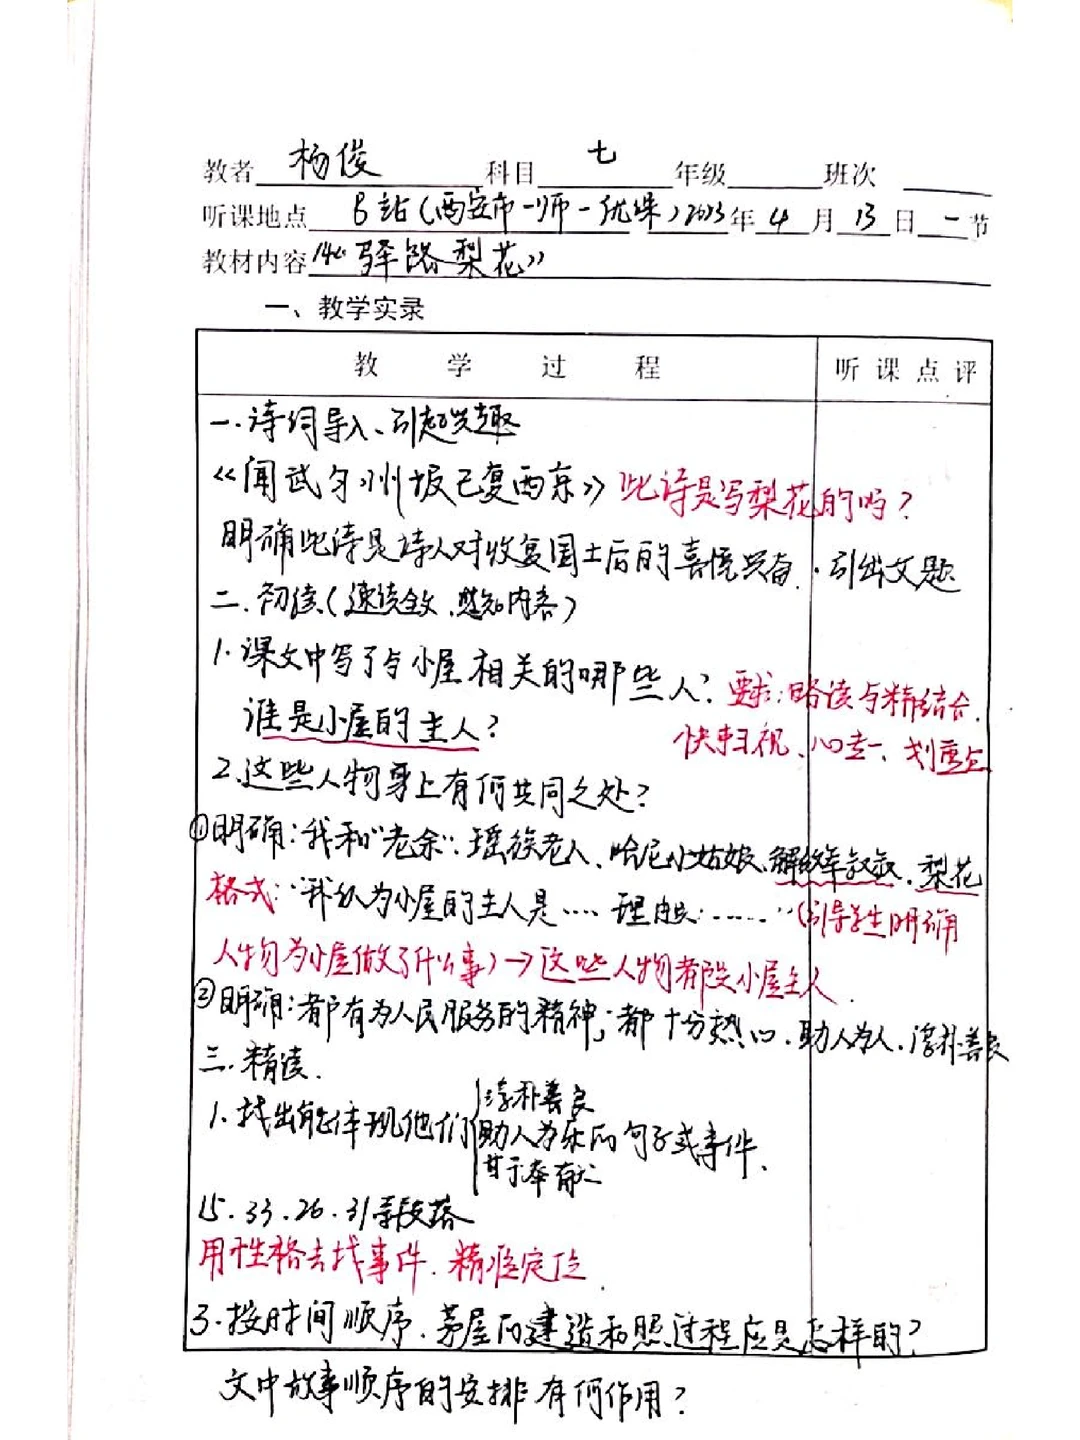 教者 杨俊 科目 七 年级 班次
听课地点 B站(西安市一师一优课) 2023年 4 月 13 日 一 节
教材内容 14《驿路梨花》
一、教学实录
教 学 过 程 听 课 点 评
一.诗词导入、引起兴趣
《闻武均州报已复西京》此诗是写梨花的吗?
明确此诗是诗人对收复国土后的喜悦兴奋.引出文题
二.初读(速读全文,感知内容)
1.课文中写了与小屋相关的哪些人? 要求:略读与精结合.
谁是小屋的主人? 快扫视、心专一、划重点
2.这些人物身上有何共同之处?
①明确:我和"老余".瑶族老人、哈尼小姑娘、解放军叔叔.梨花
格式:"我认为小屋的主人是…. 理由是:……"(引导学生明确
人物为小屋做了什么事)→这些人物都是小屋主人.
②明确:都有为人民服务的精神;都十分热心.助人为人.淳朴善良
三.精读.
1.找出能体现他们 淳朴善良
助人为乐的句子或事件.
甘于奉献
15.33.26.31等段落
用性格去找事件.精准定位
3.按时间顺序.茅屋的建造和照过程应是怎样的?
文中故事顺序的安排有何作用?